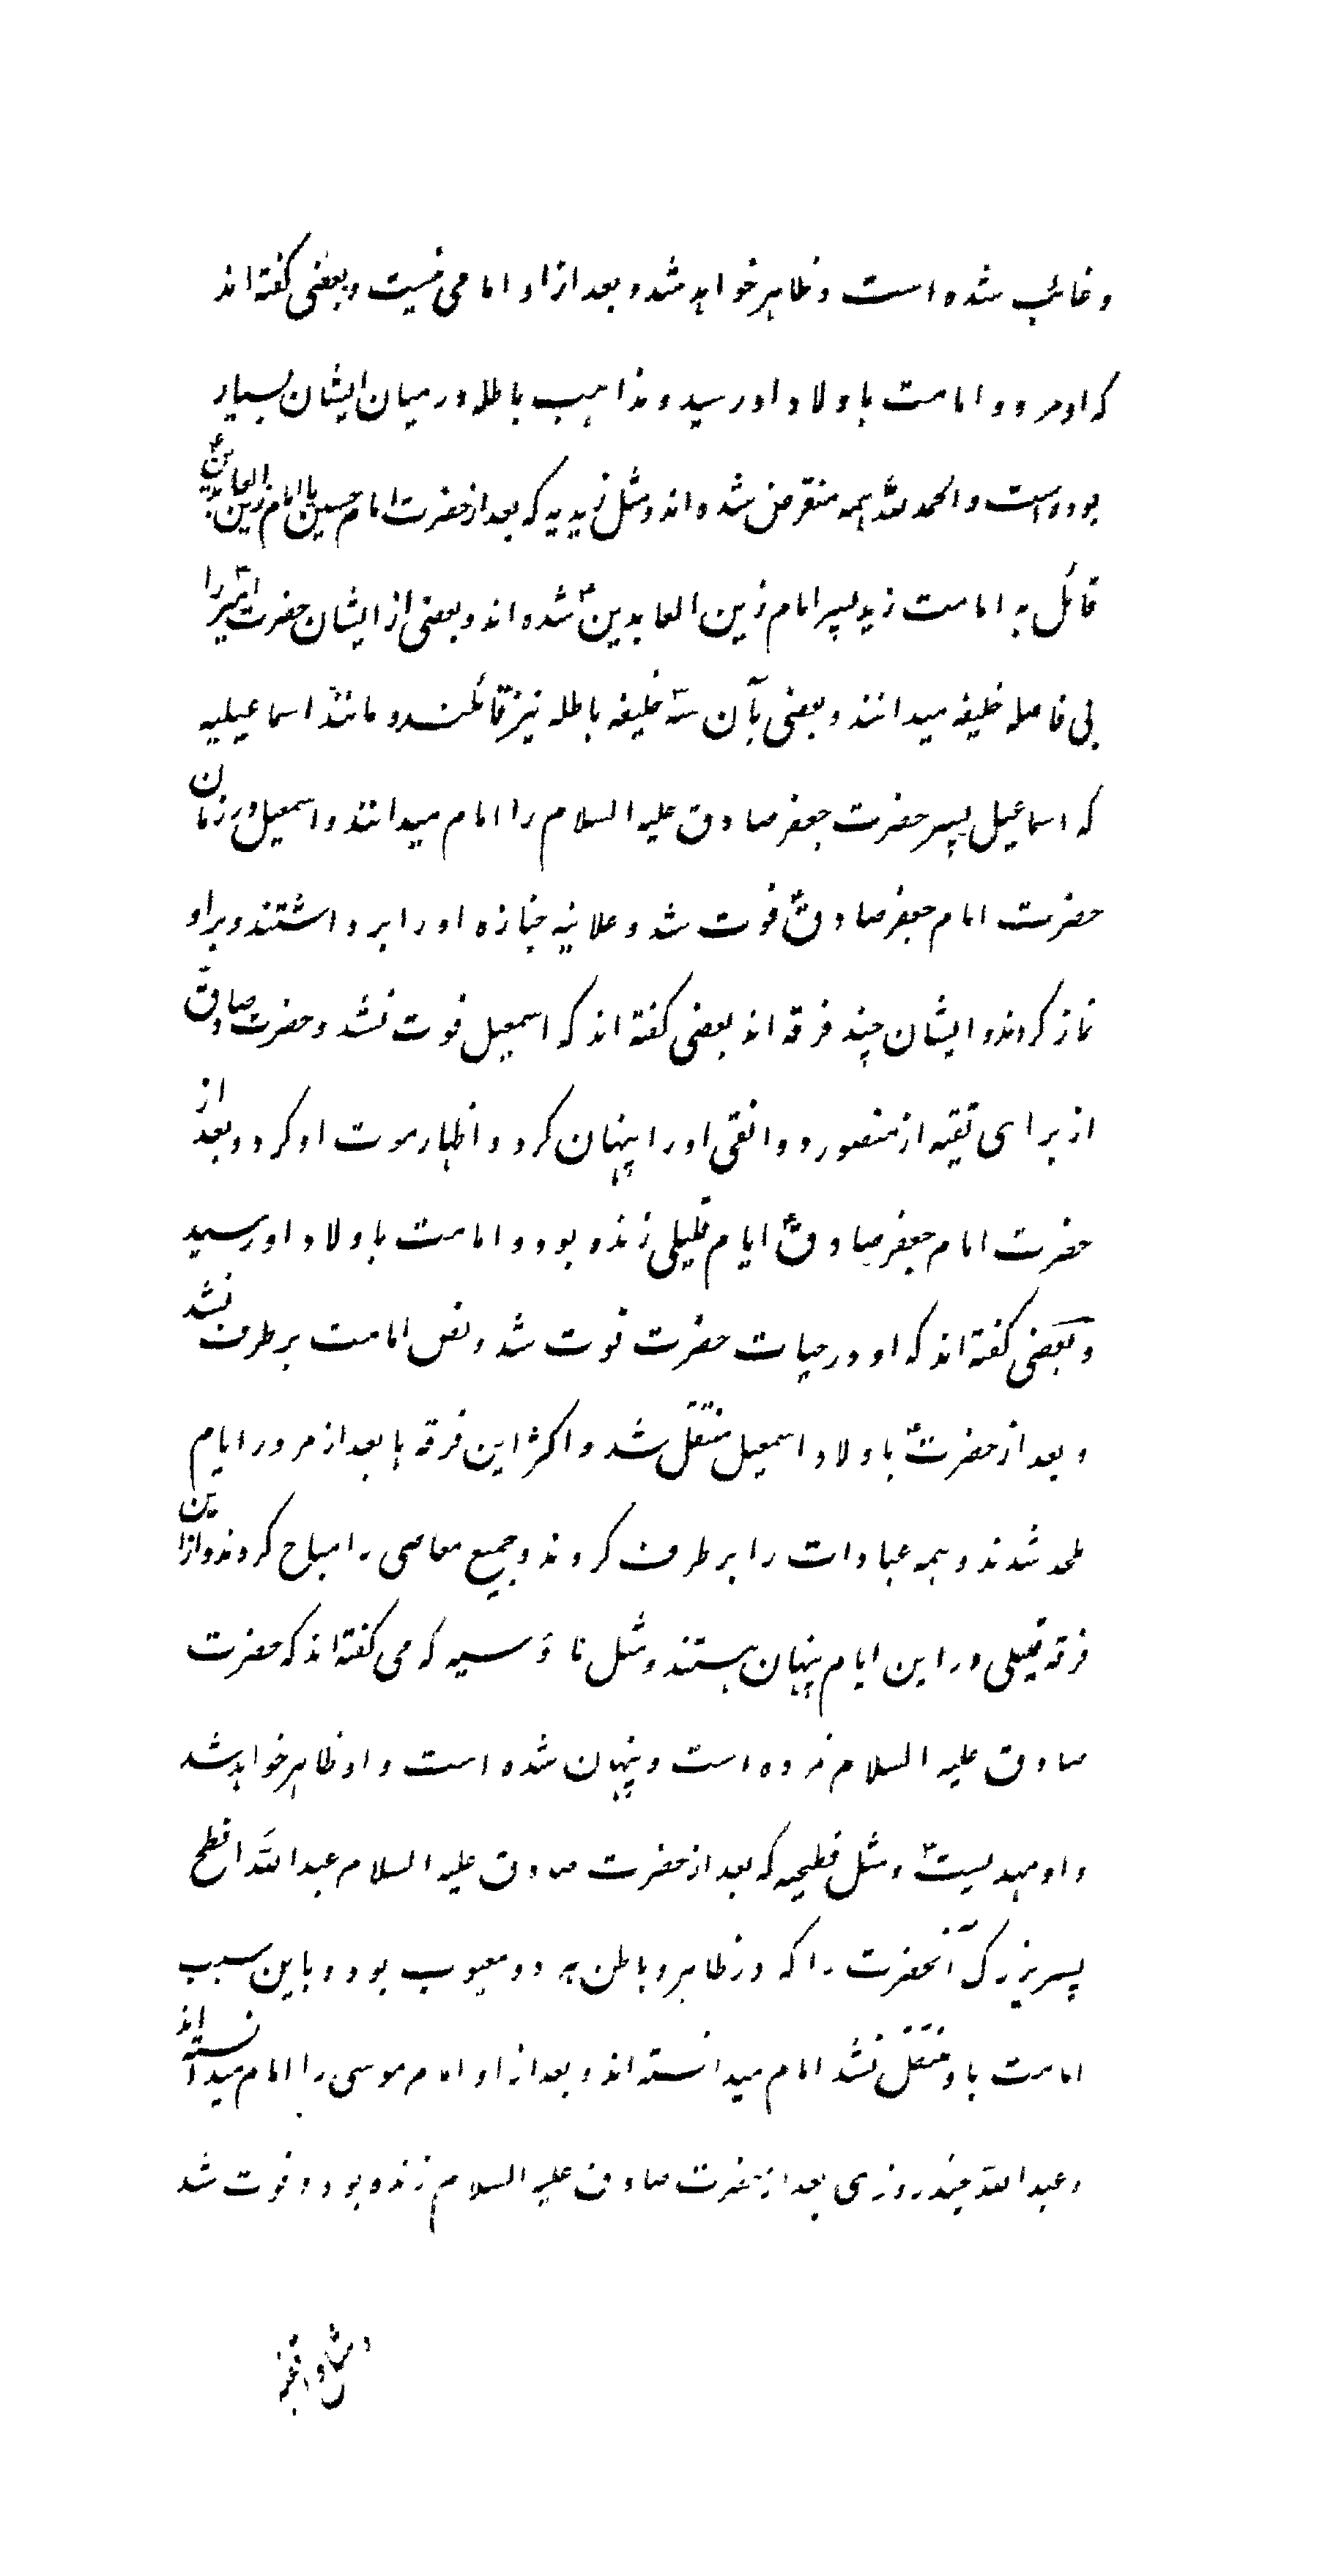 و غائب شده است و ظاهر خواهد شد و بعد از او امامی نیست و بعضی گفته اند
که او مرد و امامت باولاد او رسید و مذاهب باطله در میان ایشان بسیار
بوده است و الحمد لله همه منقرض شده اند و مثل زیدیه که بعد از حضرت امام حسین یا امام زین العابدین ع
قائل به امامت زید پسر امام زین العابدین ع شده اند و بعضی از ایشان حضرت امیر را
بی فاصله خلیفه میدانند و بعضی بآن سه خلیفه باطله نیز قائلند و مانند اسماعیلیه
که اسماعیل پسر حضرت جعفر صادق علیه السلام را امام میدانند و اسمعیل در زمان
حضرت امام جعفر صادق ع فوت شد و علانیه جنازه او را برداشتند و بر او
نماز کردند و ایشان چند فرقه اند بعضی گفته اند که اسمعیل فوت نشد و حضرت صادق
از برای تقیه از منصور دوانقی او را پنهان کرد و اظهار موت او کرد و بعد از
حضرت امام جعفر صادق ع ایام قلیلی زنده بود و امامت باولاد او رسید
و بعضی گفته اند که او در حیات حضرت فوت شد و نص امامت برطرف نشد
و بعد از حضرت ع باولاد اسمعیل منتقل شد و اکثر این فرقه ها بعد از مرور ایام
ملحد شدند و همه عبادات را برطرف کردند و جمیع معاصی را مباح کردند و ازاین
فرقه قلیلی در این ایام پنهان هستند و مثل ناؤسیه که می گفته اند که حضرت
صادق علیه السلام نمرده است و پنهان شده است و او ظاهر خواهد شد
و او مهدیست و مثل فطحیه که بعد از حضرت صادق علیه السلام عبد الله افطح
پسر بزرگ آنحضرت را که در ظاهر و باطن هر دو معیوب بود و باین سبب
امامت باو منتقل نشد امام میدانسته اند و بعد از او امام موسی را امام میدانسته اند
و عبد الله چند روزی بعد از حضرت صادق علیه السلام زنده بود و فوت شد